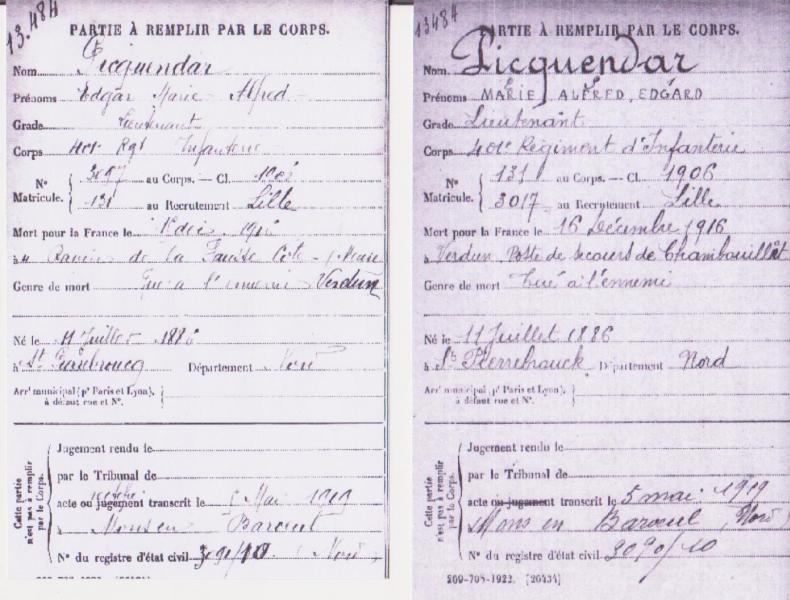 13.484
PARTIE À REMPLIR PAR LE CORPS.
Nom Picquendar
Prénoms Edgar Marie Alfred
Grade Lieutenant
Corps 401e Rgt Infanterie
N° Matricule. { au Corps. — Cl. 
131 au Recrutement Lille
Mort pour la France le déc. 1916
à Ravin de la Fausse Côte - (Meuse
Genre de mort Tué à l'ennemi Verdun
Né le 11 Juillet 1886
à St Département Nord
Arrt municipal (pr Paris et Lyon),
à défaut rue et N°.
Cette partie n'est pas à remplir par le Corps.
Jugement rendu le
par le Tribunal de
acte ou jugement transcrit le 5 Mai 1919
à Mons en Baroeul
N° du registre d'état civil 3090/10 (Nord)
209-708-1922. [26434]
13484
PARTIE À REMPLIR PAR LE CORPS.
Nom Picquendar
Prénoms MARIE, ALFRED, EDGARD
Grade Lieutenant
Corps 401e Régiment d'Infanterie
N° Matricule. { 131 au Corps. — Cl. 1906
3017 au Recrutement Lille
Mort pour la France le 16 Décembre 1916
à Verdun, Poste de secours de Chambouillat
Genre de mort Tué à l'ennemi
Né le 11 Juillet 1886
à St Pierrebrouck Département Nord
Arrt municipal (pr Paris et Lyon),
à défaut rue et N°.
Cette partie n'est pas à remplir par le Corps.
Jugement rendu le
par le Tribunal de
acte ou jugement transcrit le 5 mai 1919
à Mons en Baroeul (Nord)
N° du registre d'état civil 3090/10
209-708-1922. [26434]